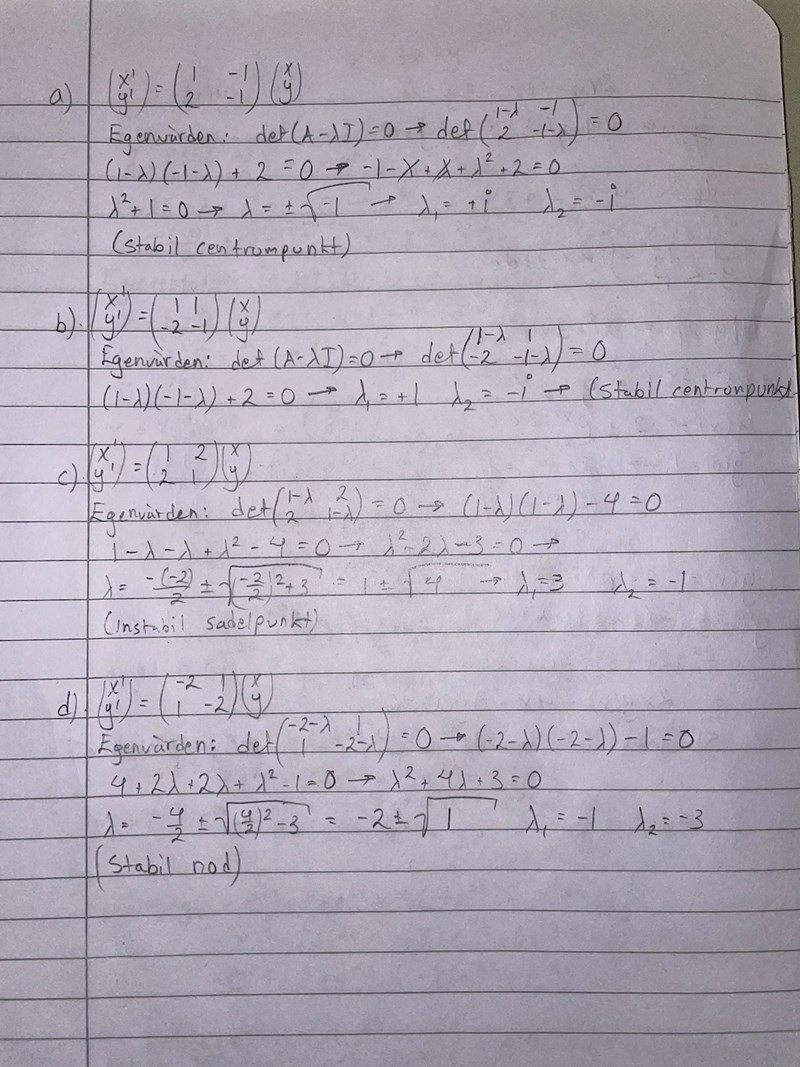 a) (x' y') = (1 -1 2 -1)(x y)
Egenvärden: det(A-λI)=0 → det(1-λ -1 2 -1-λ) = 0
(1-λ)(-1-λ) + 2 = 0 → -1-λ+λ+λ²+2=0
λ²+1=0 → λ=±√-1 → λ₁=+i λ₂=-i
(Stabil centrumpunkt)
b). (x' y') = (1 1 -2 -1)(x y)
Egenvärden: det(A-λI)=0 → det(1-λ 1 -2 -1-λ) = 0
(1-λ)(-1-λ)+2=0 → λ₁=+1 λ₂=-i → (Stabil centronpunkt
c). (x' y') = (1 2 2 1)(x y)
Egenvärden: det(1-λ 2 2 1-λ) = 0 → (1-λ)(1-λ)-4=0
1-λ-λ+λ²-4=0 → λ²-2λ-3=0 →
λ= -(-2)/2 ± √(-2/2)²+3 = 1±√4 → λ₁=3 λ₂=-1
(Instabil sadelpunkt)
d). (x' y') = (-2 1 1 -2)(x y)
Egenvärden: det(-2-λ 1 1 -2-λ) = 0 → (-2-λ)(-2-λ)-1=0
4+2λ+2λ+λ²-1=0 → λ²+4λ+3=0
λ= -4/2 ± √(4/2)²-3 = -2±√1 λ₁=-1 λ₂=-3
(Stabil nod)